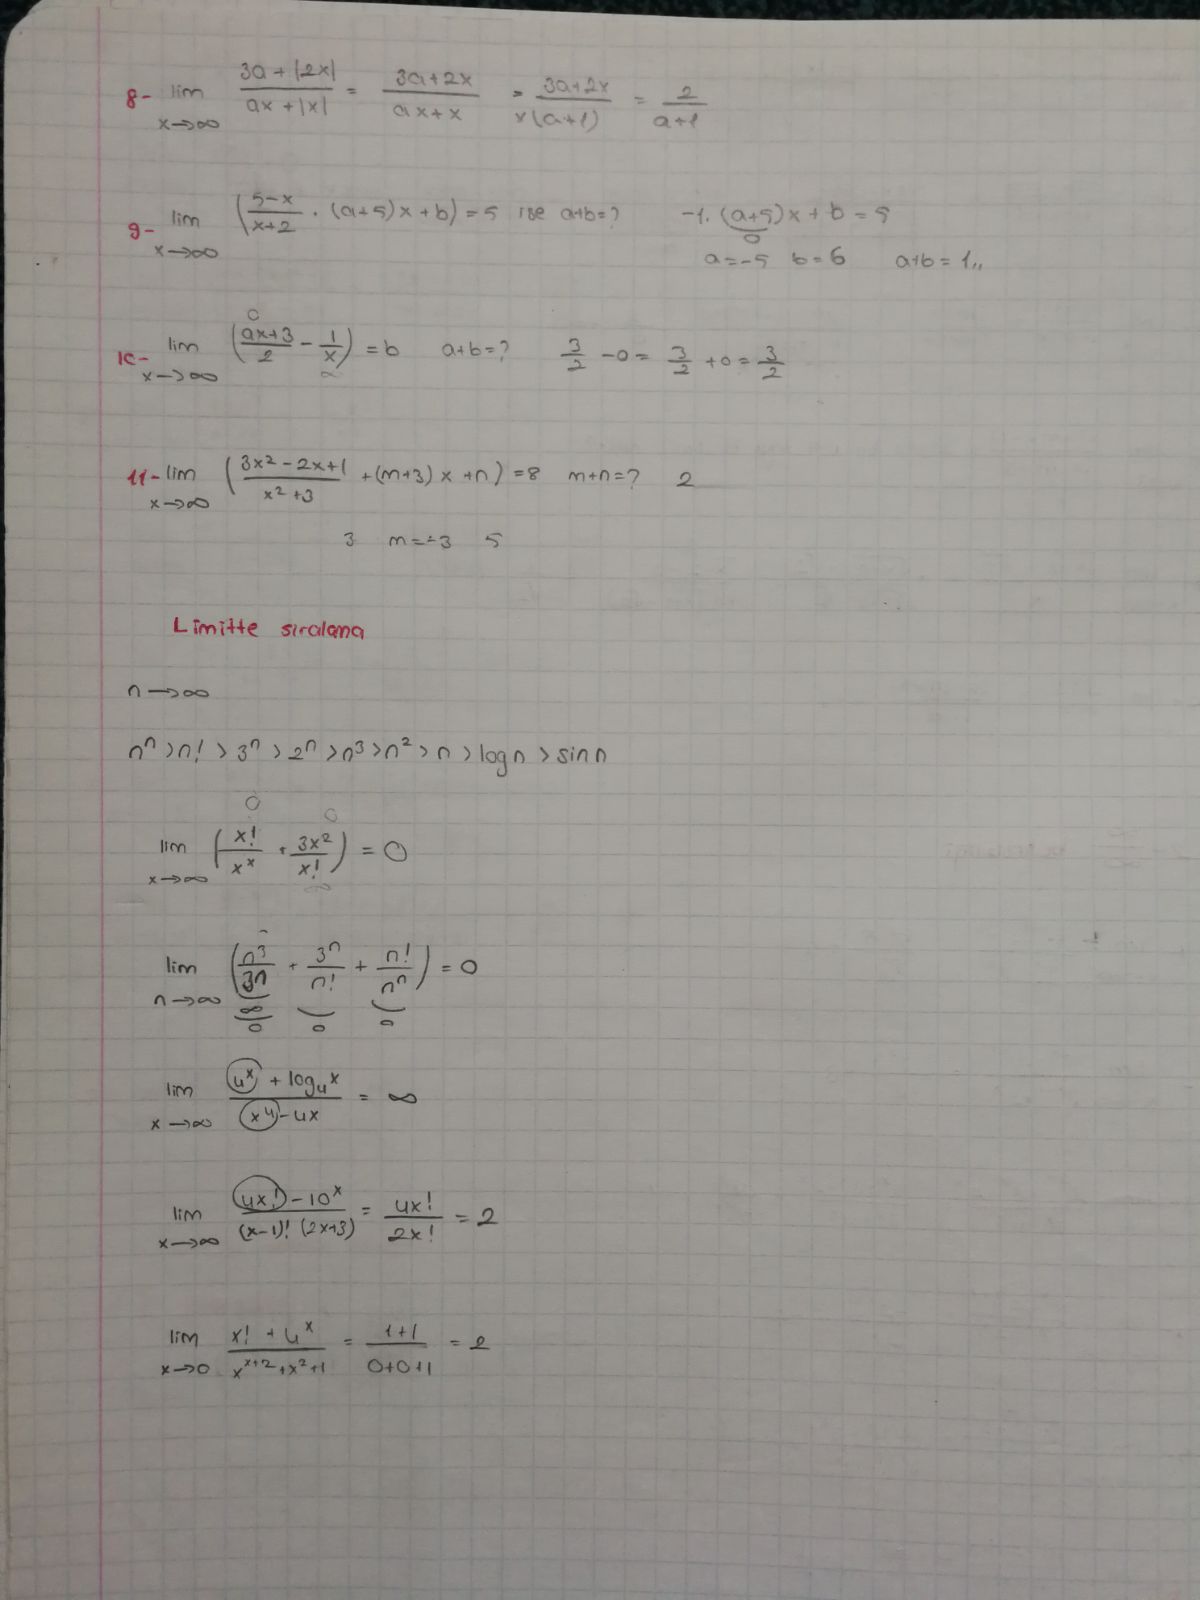 8- lim x→∞ (3a+|2x|)/(ax+|x|) = (3a+2x)/(ax+x) = (3a+2x)/(x(a+1)) = 2/(a+1)
9- lim x→∞ ((5-x)/(x+2) · (a+5)x+b) = 5 ise a+b=? -1.(a+5)x+b=5
0
a=-5 b=6 a+b=1,,
10- lim x→∞ ((ax+3)/2 - 1/x) = b a+b=? 3/2 -0= 3/2 +0= 3/2
11- lim x→∞ ((3x²-2x+1)/(x²+3) +(m+3)x+n) =8 m+n=? 2
3 m=-3 5
Limitte sıralama
n→∞
nⁿ>n!>3ⁿ>2ⁿ>n³>n²>n>logn>sinn
0 0
lim x→∞ (x!/xˣ + 3x²/x!) = 0
∞
lim n→∞ (n³/3ⁿ + 3ⁿ/n! + n!/nⁿ) = 0
0 0 0
lim x→∞ (4ˣ+log₄x)/(x⁴-4x) = ∞
lim x→∞ (4x!-10ˣ)/((x-1)!(2x+3)) = 4x!/2x! = 2
lim x→0 (x!+4ˣ)/(xˣ⁺²+x²+1) = (1+1)/(0+0+1) = 2